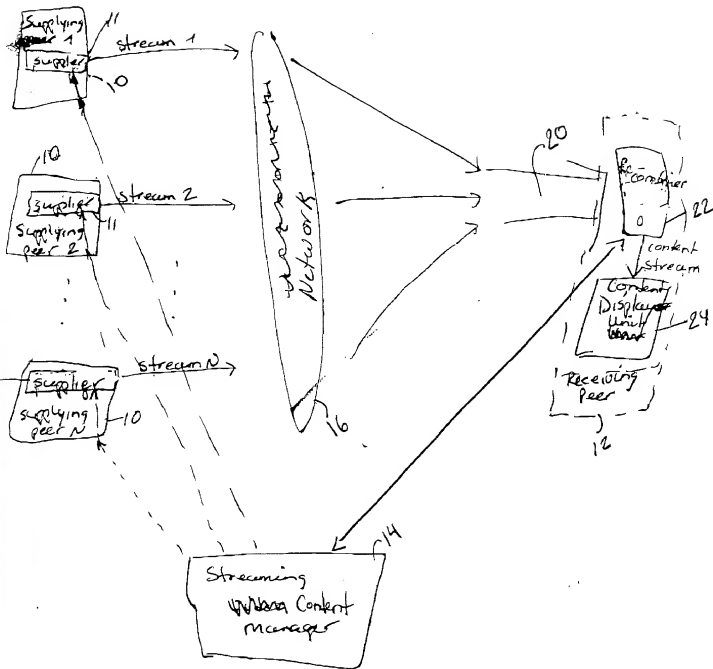 Supplying
peer 1
supplier
11
10
stream 1
10
supplier
11
Supplying
peer 2
stream 2
supplier
supplying
peer N
10
stream N
Network
16
20
combiner
22
content
stream
Content
Display
Unit
24
Receiving
Peer
12
14
Streaming
Content
Manager